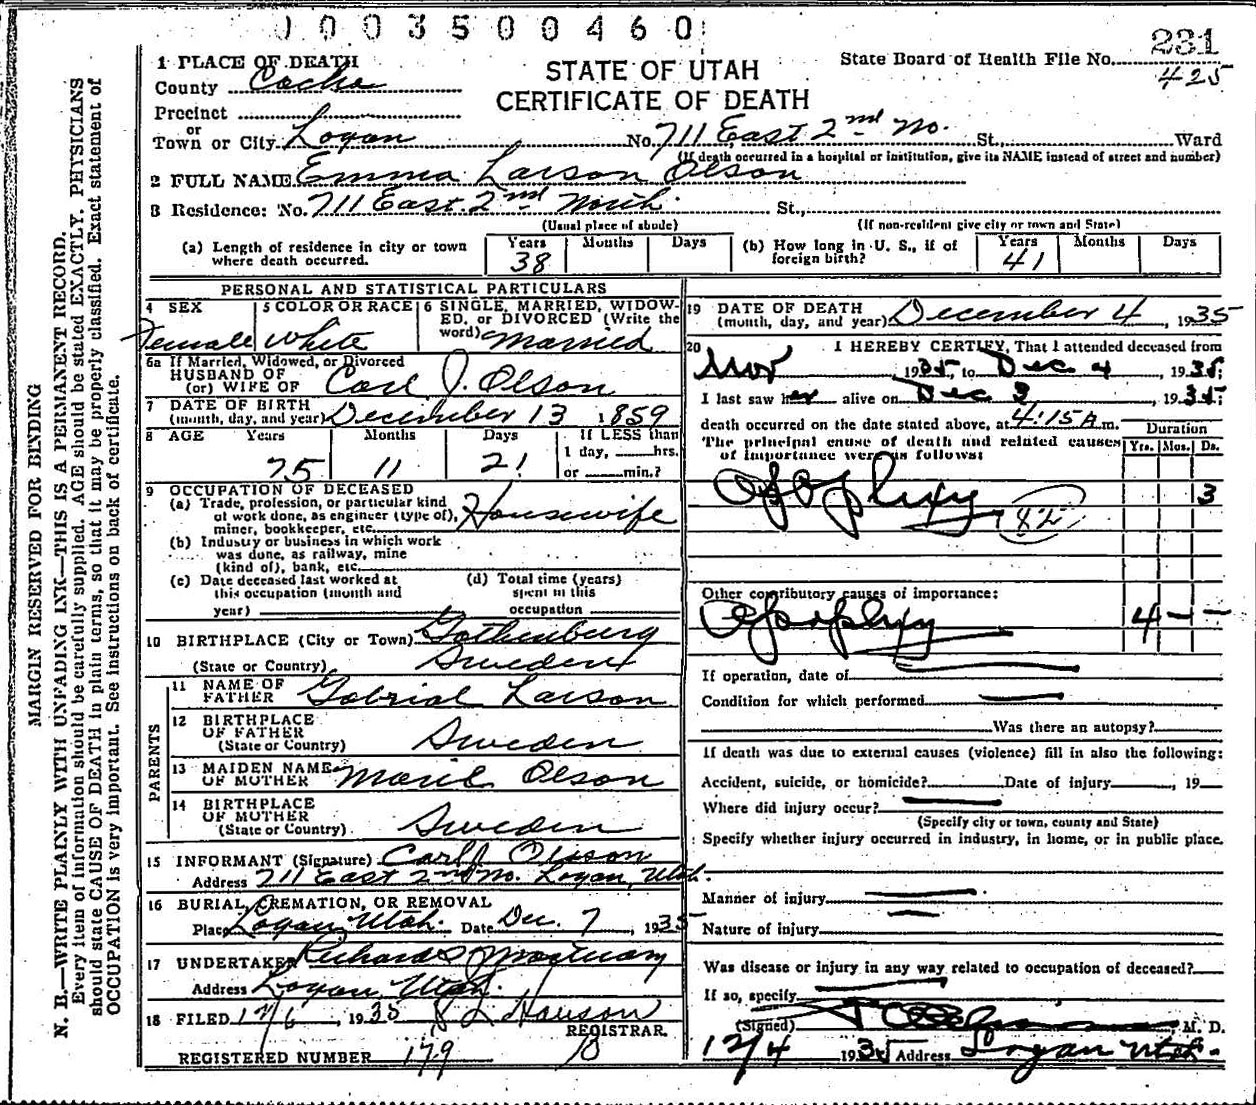 1 0 0 3 5 0 0 4 6 0
231
State Board of Health File No.
425
STATE OF UTAH
CERTIFICATE OF DEATH
1 PLACE OF DEATH
County Cache
Precinct
or
Town or City Logan No. 711 East 2nd No. St., Ward
(If death occurred in a hospital or institution, give its NAME instead of street and number)
2 FULL NAME Emma Larson Olson
3 Residence: No. 711 East 2nd North St.,
(Usual place of abode) (If non-resident give city or town and State)
(a) Length of residence in city or town where death occurred. Years 38 Months Days
(b) How long in U. S., if of foreign birth? Years 41 Months Days
PERSONAL AND STATISTICAL PARTICULARS
4 SEX Female
5 COLOR OR RACE White
6 SINGLE, MARRIED, WIDOWED, or DIVORCED (Write the word) Married
6a If Married, Widowed, or Divorced
HUSBAND OF
(or) WIFE OF Carl J. Olson
7 DATE OF BIRTH
(month, day, and year) December 13 1859
8 AGE Years 75 Months 11 Days 21 If LESS than 1 day, hrs. or min.?
9 OCCUPATION OF DECEASED
(a) Trade, profession, or particular kind of work done, as engineer (type of), miner, bookkeeper, etc. Housewife
(b) Industry or business in which work was done, as railway, mine (kind of), bank, etc.
(c) Date deceased last worked at this occupation (month and year)
(d) Total time (years) spent in this occupation
10 BIRTHPLACE (City or Town) Gothenburg
(State or Country) Sweden
PARENTS
11 NAME OF FATHER Gabrial Larson
12 BIRTHPLACE OF FATHER
(State or Country) Sweden
13 MAIDEN NAME OF MOTHER Marie Olson
14 BIRTHPLACE OF MOTHER
(State or Country) Sweden
15 INFORMANT (Signature) Carl J Olson
Address 711 East 2nd No. Logan, Utah.
16 BURIAL, CREMATION, OR REMOVAL
Place Logan, Utah. Date Dec. 7, 1935
17 UNDERTAKER Richards Mortuary
Address Logan Utah.
18 FILED 12/6 1935
REGISTRAR.
REGISTERED NUMBER 179
19 DATE OF DEATH
(month, day, and year) December 4, 1935
20 I HEREBY CERTIFY, That I attended deceased from
Nov 1935, to Dec 4, 1935;
I last saw her alive on Dec 3, 1935;
death occurred on the date stated above, at 4:15 A m.
The principal cause of death and related causes of importance were as follows:
Duration
Yrs. Mos. Ds.
Apoplexy 3
82
Other contributory causes of importance:
Apoplexy 4 - -
If operation, date of
Condition for which performed
Was there an autopsy?
If death was due to external causes (violence) fill in also the following:
Accident, suicide, or homicide? Date of injury, 19
Where did injury occur?
(Specify city or town, county and State)
Specify whether injury occurred in industry, in home, or in public place.
Manner of injury
Nature of injury
Was disease or injury in any way related to occupation of deceased?
If so, specify
(Signed) , M. D.
12/4 1935 Address Logan Utah.
MARGIN RESERVED FOR BINDING
N. B.—WRITE PLAINLY WITH UNFADING INK—THIS IS A PERMANENT RECORD.
Every item of information should be carefully supplied. AGE should be stated EXACTLY. PHYSICIANS
should state CAUSE OF DEATH in plain terms, so that it may be properly classified. Exact statement of
OCCUPATION is very important. See instructions on back of certificate.